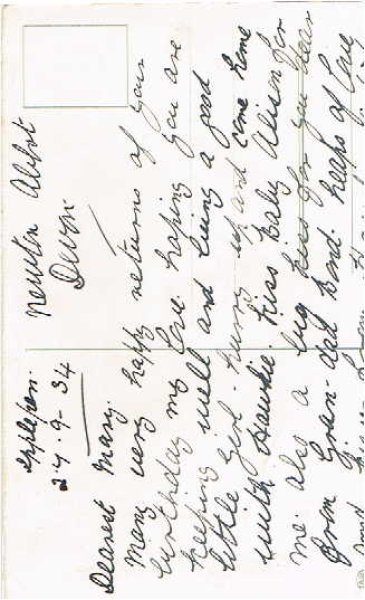 Applepen.
24.9-34
Newton Abbot
Devon
Dearest Mary.
Many very happy returns of your
birthday my love hoping you are
keeping well and being a good
little girl. hurry up and come home
with Auntie. kiss Baby Alison for
me. also a big kiss for you dear
from Gran-dad and heaps of love
and